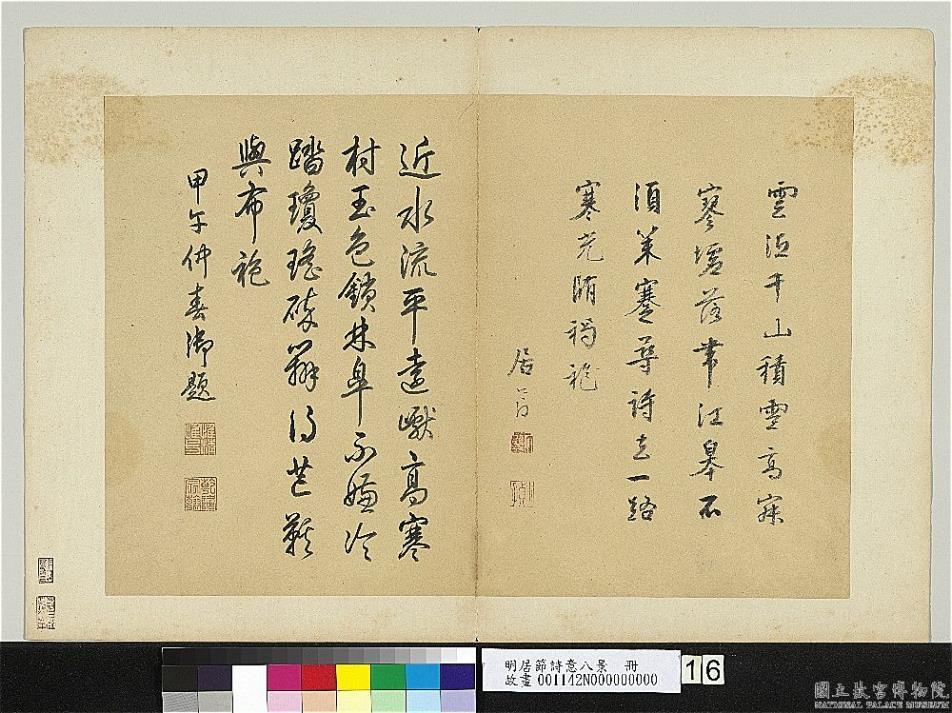 雲千山積雪高寂
寥墟落帶江皋不
須策蹇尋詩去一路
寒光隨褐袍
居節
近水流平遠巘高寒
村玉色鎖林皋不嫌冷
踏瓊瑤碎辦得芒鞵
與布袍
甲午仲春御題
惟精惟一
乾隆宸翰
明居節詩意八景 冊
故畫 001142N000000000
16
國立故宮博物院
NATIONAL PALACE MUSEUM